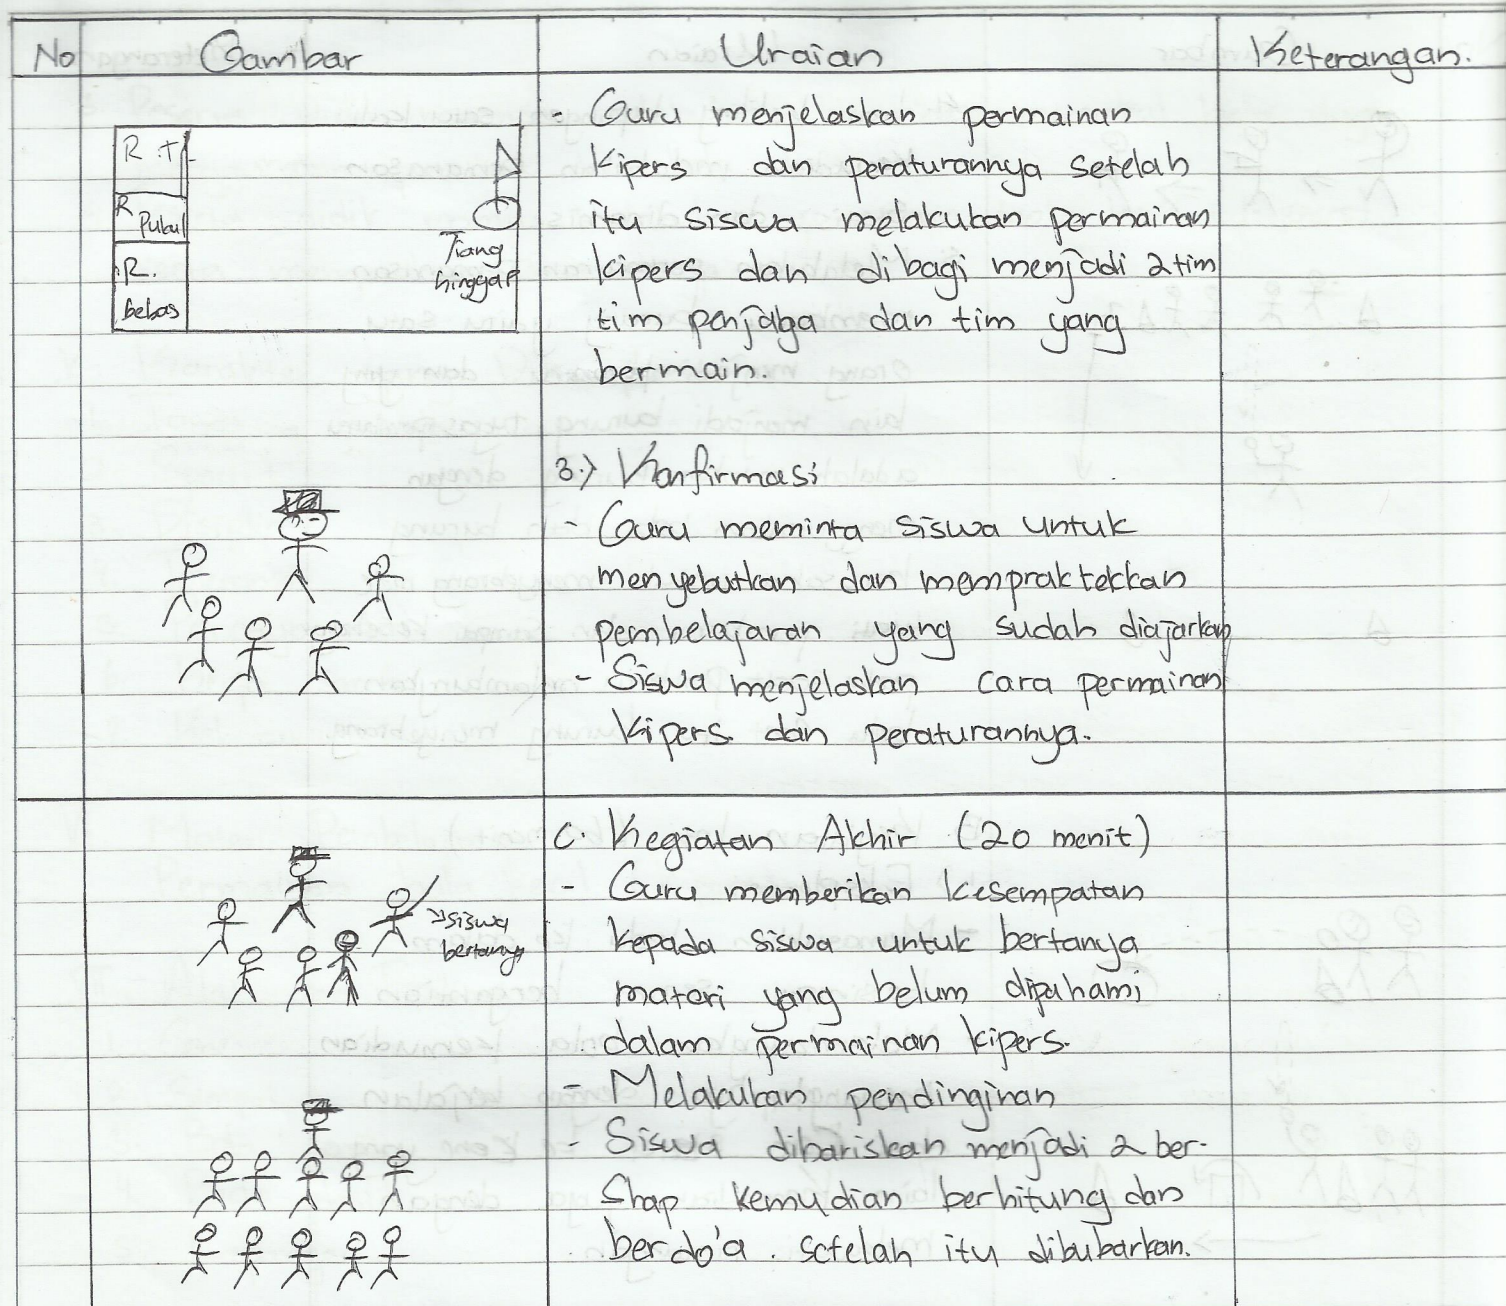 No Gambar Uraian Keterangan.
- Guru menjelaskan permainan
Kipers dan peraturannya setelah
itu siswa melakukan permainan
kipers dan dibagi menjadi 2 tim
tim penjaga dan tim yang
bermain.
R. T
R
Pukul
R.
bebas
Tiang
hinggap
3.) Konfirmasi
- Guru meminta siswa untuk
menyebutkan dan mempraktekkan
pembelajaran yang sudah diajarkan
- Siswa menjelaskan cara permainan
Kipers dan peraturannya.
C. Kegiatan Akhir (20 menit)
- Guru memberikan kesempatan
kepada siswa untuk bertanya
materi yang belum dipahami
dalam permainan kipers.
- Melakukan pendinginan
- Siswa dibariskan menjadi 2 ber-
Shap kemudian berhitung dan
berdo'a. setelah itu dibubarkan.
siswa
bertanya